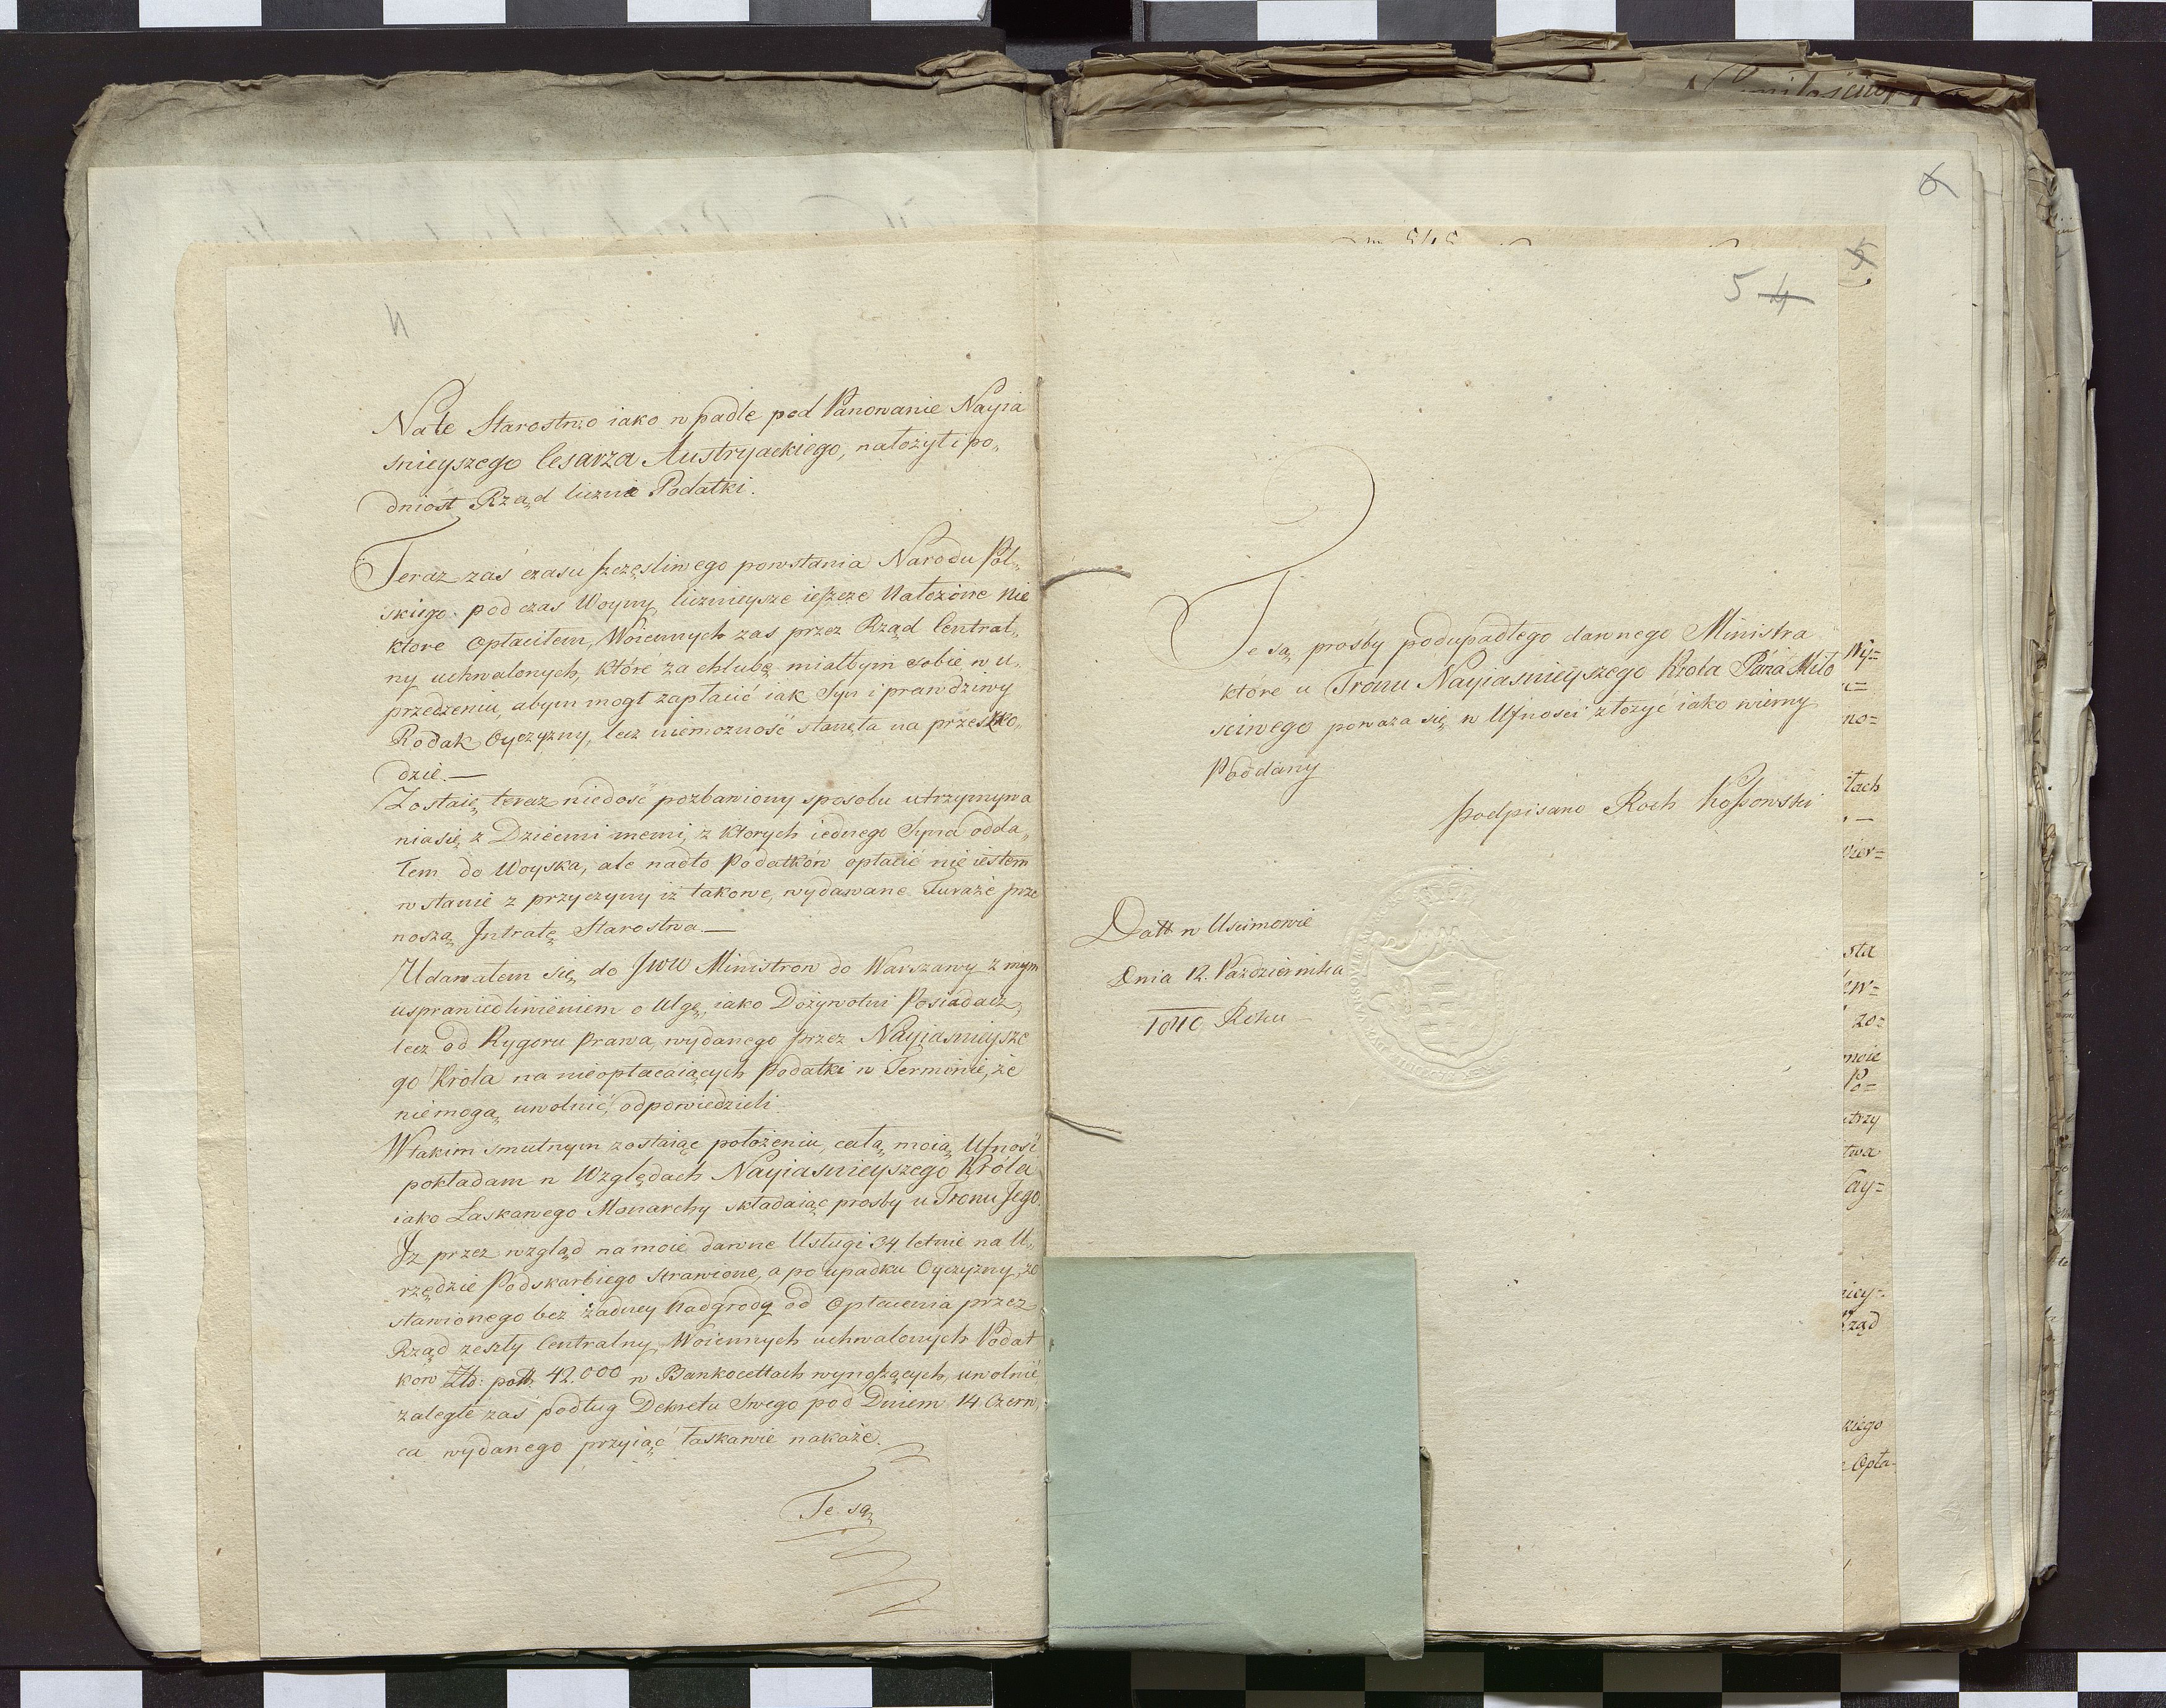 Na te Starostwo iako w padłe pod Panowanie Nayia
snieyszego Cesarza Austryackiego, nałożył i po„
dniosł Rząd liczne Podatki.
Teraz zaś czasu szczęsliwego powstania Narodu Pol„
skiego podczas Woyny licznieysze ieszcze Nałożone Nie
ktore Opłaciłem, Woiennych zas przez Rząd Central„
ny uchwalonych, które za chlubę miałbym sobie w u„
przedzeniu, abym mogł zapłacić iak Syn i prawdziwy
Rodak Oyczyzny, lecz niemozność stanęła na przeszko„
dzie.—
Zostaię teraz niedość pozbawiony sposobu utrzymywa
nia się z Dziećmi memi, z ktorych iednego Syna odda„
łem do Woyska, ale nadto Podatków opłacić nie iestem
w stanie z przyczyny iż takowe, wydawane Furaże prze
noszą Intratę Starostwa.—
Udawałem się do JWW Ministrow do Warszawy z mym
usprawiedliwieniem o Ulgę, iako Dożywotni Posiadacz,
lecz od Rygoru Prawa, wydanego przez Nayiasnieysze
go Króla na nieopłacaiących Podatki w Terminie, że
niemogą uwolnić, odpowiedzieli.
W takim smutnym zostaiąc położeniu, całą moią Ufność
pokładam w Względach Nayiasnieyszego Króla
iako Łaskawego Monarchy składaiąc prosby u Tronu Jego.
Iz przez wzgląd na moie dawne Usługi 34 letnie na U„
rzędzie Podskarbiego strawione, a po upadku Oyczyzny, zo
stawionego bez żadney Nadgrody od Opłacenia przez
Rząd zeszły Centralny, Woiennych uchwalonych Podat
kow Złł: poll: 42.000 w Bankocetlach wynoszących, uwolnić
zaległe zaś podług Dekretu Swego pod Dniem 14 Czerw„
ca wydanego przyiąć łaskawie nakaże.
Te są
5 4
Te są prośby podupadłego dawnego Ministra
które u Tronu Nayiasnieyszego Krola Pána Miło
sciwego poważa się w Ufnosci złożyć iako wierny
Poddany
podpisano Roch Kossowski
Datt w Uscimowie
Dnia 12. Pazdziernika
1810 Roku
6
5
no=
łach
wier=
sta
zo=
moie
Po=
utrzy
twa
Nay=
niey=
Rząd
kiego
Opła-